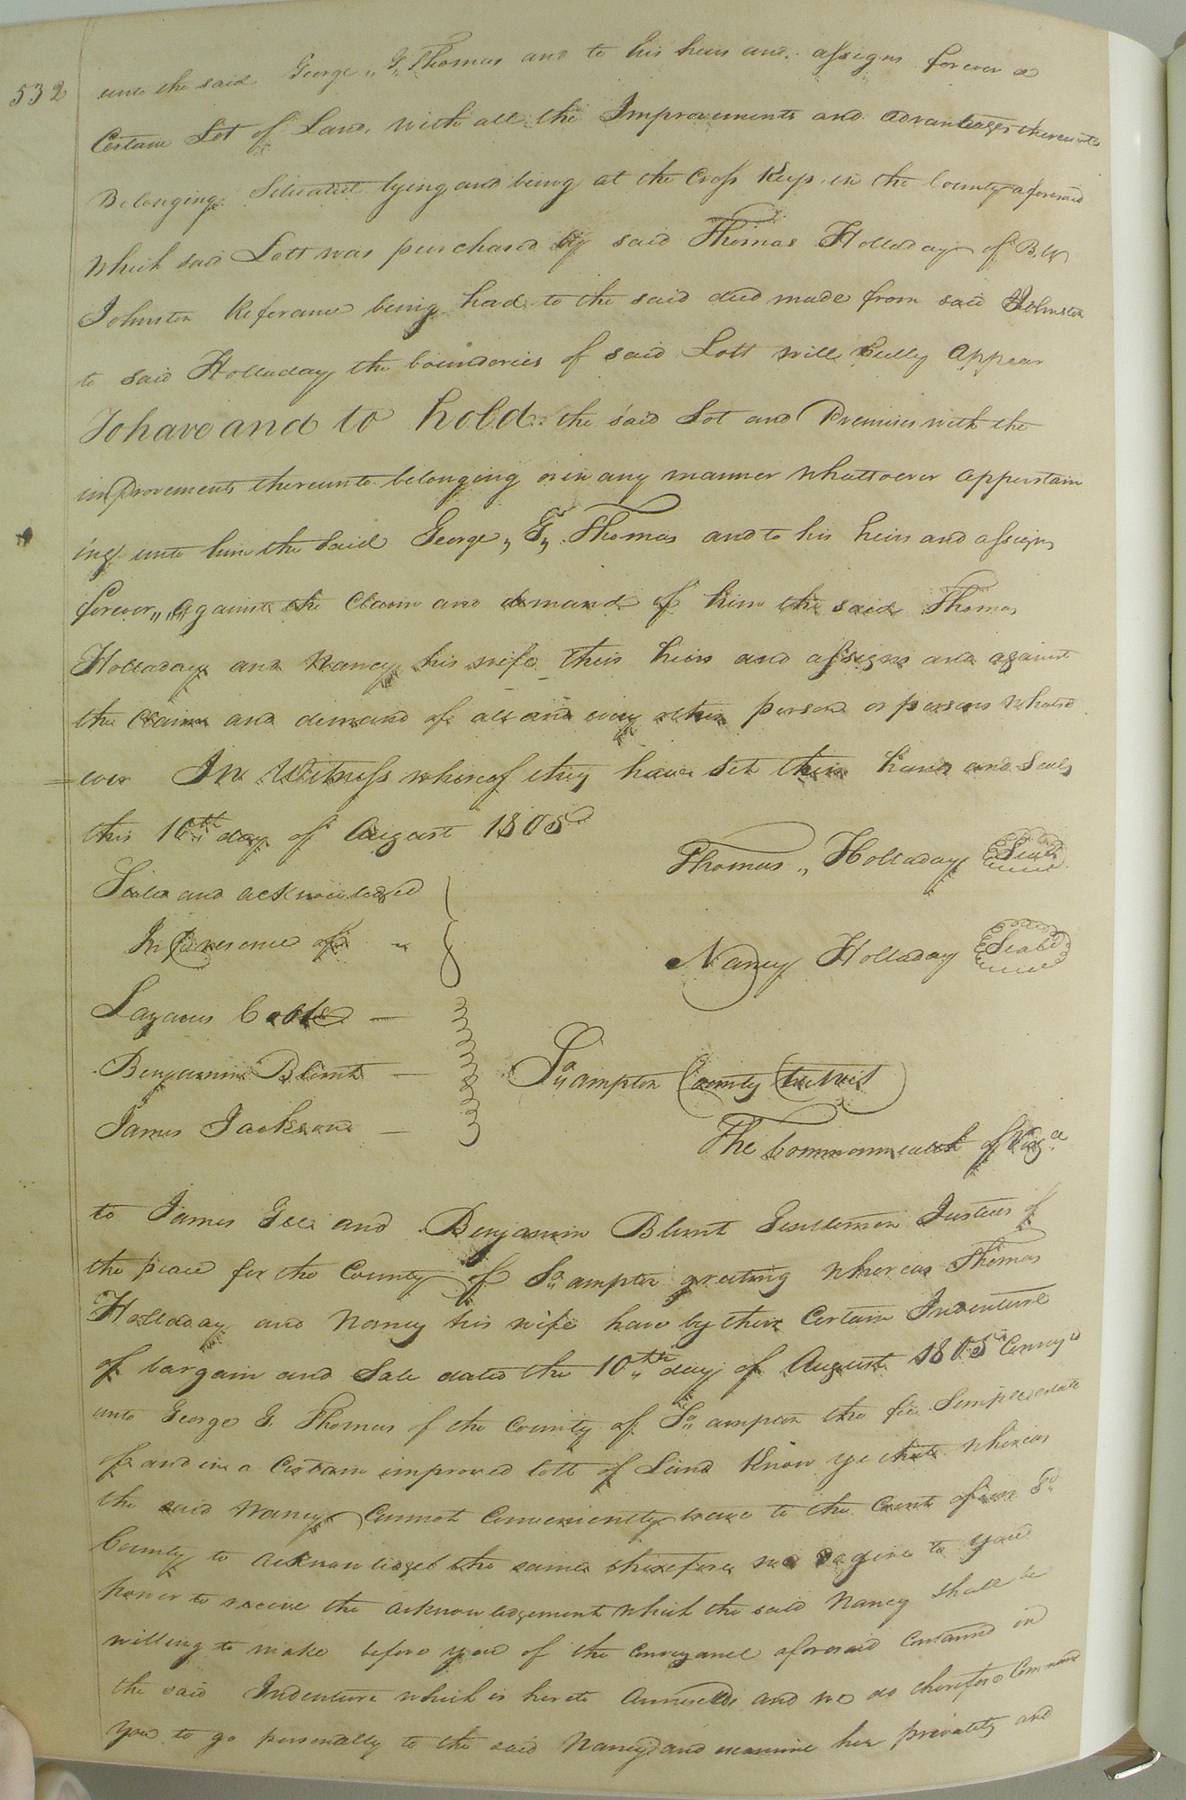 532
unto the said George „ G „ Thomas and to his heirs and assigns forever a
Certain Lot of Land, with all the Improvements and advantages thereunto
Belonging Situated lying and being at the Cross Keys in the County aforesaid
which said Lott was purchased by said Thomas Holladay of B. W
Johnston Referance being had to the said deed made from said Johnston
to said Holladay the boundories of said Lott will fully appear
To have and to hold the said Lot and Premises with the
improvements thereunto belonging or in any manner whatsoever appertain
ing unto him the said George „ G „ Thomas and to his heirs and assigns
forever „ „ against the Claim and demand of him the said Thomas
Holladay and Nancy his wife their heirs and assigns and against
the Claim and demand of all and every other person or persons whatso
= ever In Witness whereof they have set their hand and seals
this 10th day of August 1805
Thomas „ Holladay Seal
Seald and acknowledged
In Presence of
Nancy Holladay Seal
Lazarus Cobb
Benjamin Blunt
James Jackson
So ampton County to wit
The Commonwealth of Virga
to James Gee and Benjamin Blunt Gentlemen Justices of
the peace for the County of So ampton greeting whereas Thomas
Holladay and Nancy his wife have by their Certain Indenture
of bargain and Sale dated the 10th day of August 1805 Convey'd
unto George G. Thomas of the County of So ampton the fee Simple estate
of and in a Certain improved lott of Land Know ye that whereas
the said Nancy Cannot Conveniently to the Court of our Sd
County to acknowledge the same therefore we do give to you
power to receive the acknowledgement which the said Nancy shall be
willing to make before you of the Conveyance aforesaid Contained in
the said Indenture which is hereto Annexed and we do therefore Command
you to go personally to the said Nancy and examine her privately and